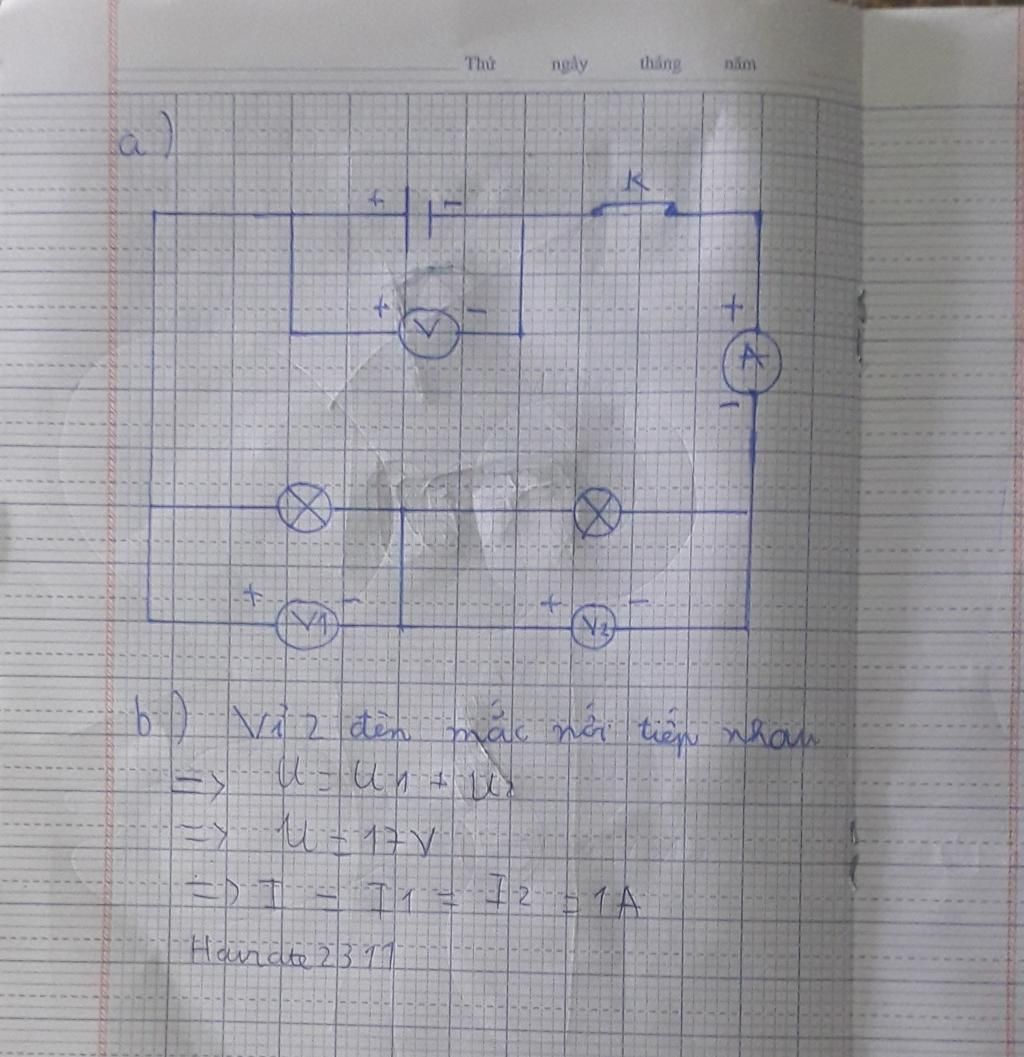 Thứ ngày tháng năm
a)
+ - K
+ V - +
A
-
+ V1 - + V2 -
b) Vì 2 đèn mắc nối tiếp nhau
=> U = U1 + U2
=> U = 17V
=> I = I1 = I2 = 1A
Hairate2311